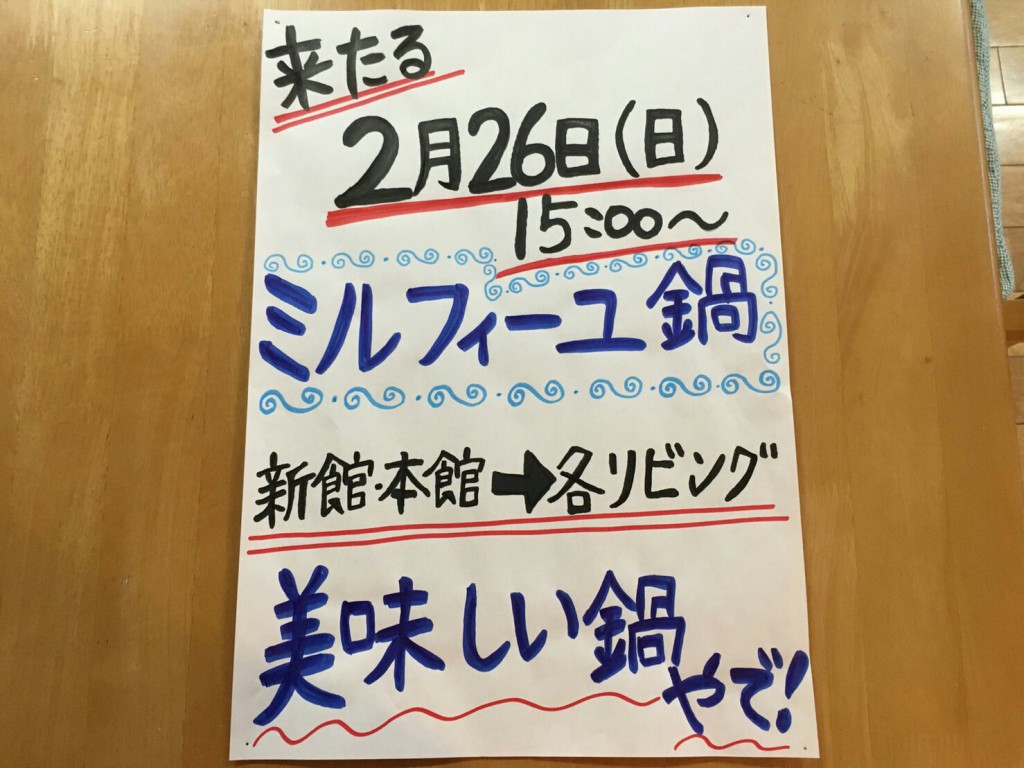 来たる
2月26日(日)
15:00〜
ミルフィーユ鍋
新館・本館➡各リビング
美味しい鍋
やで!